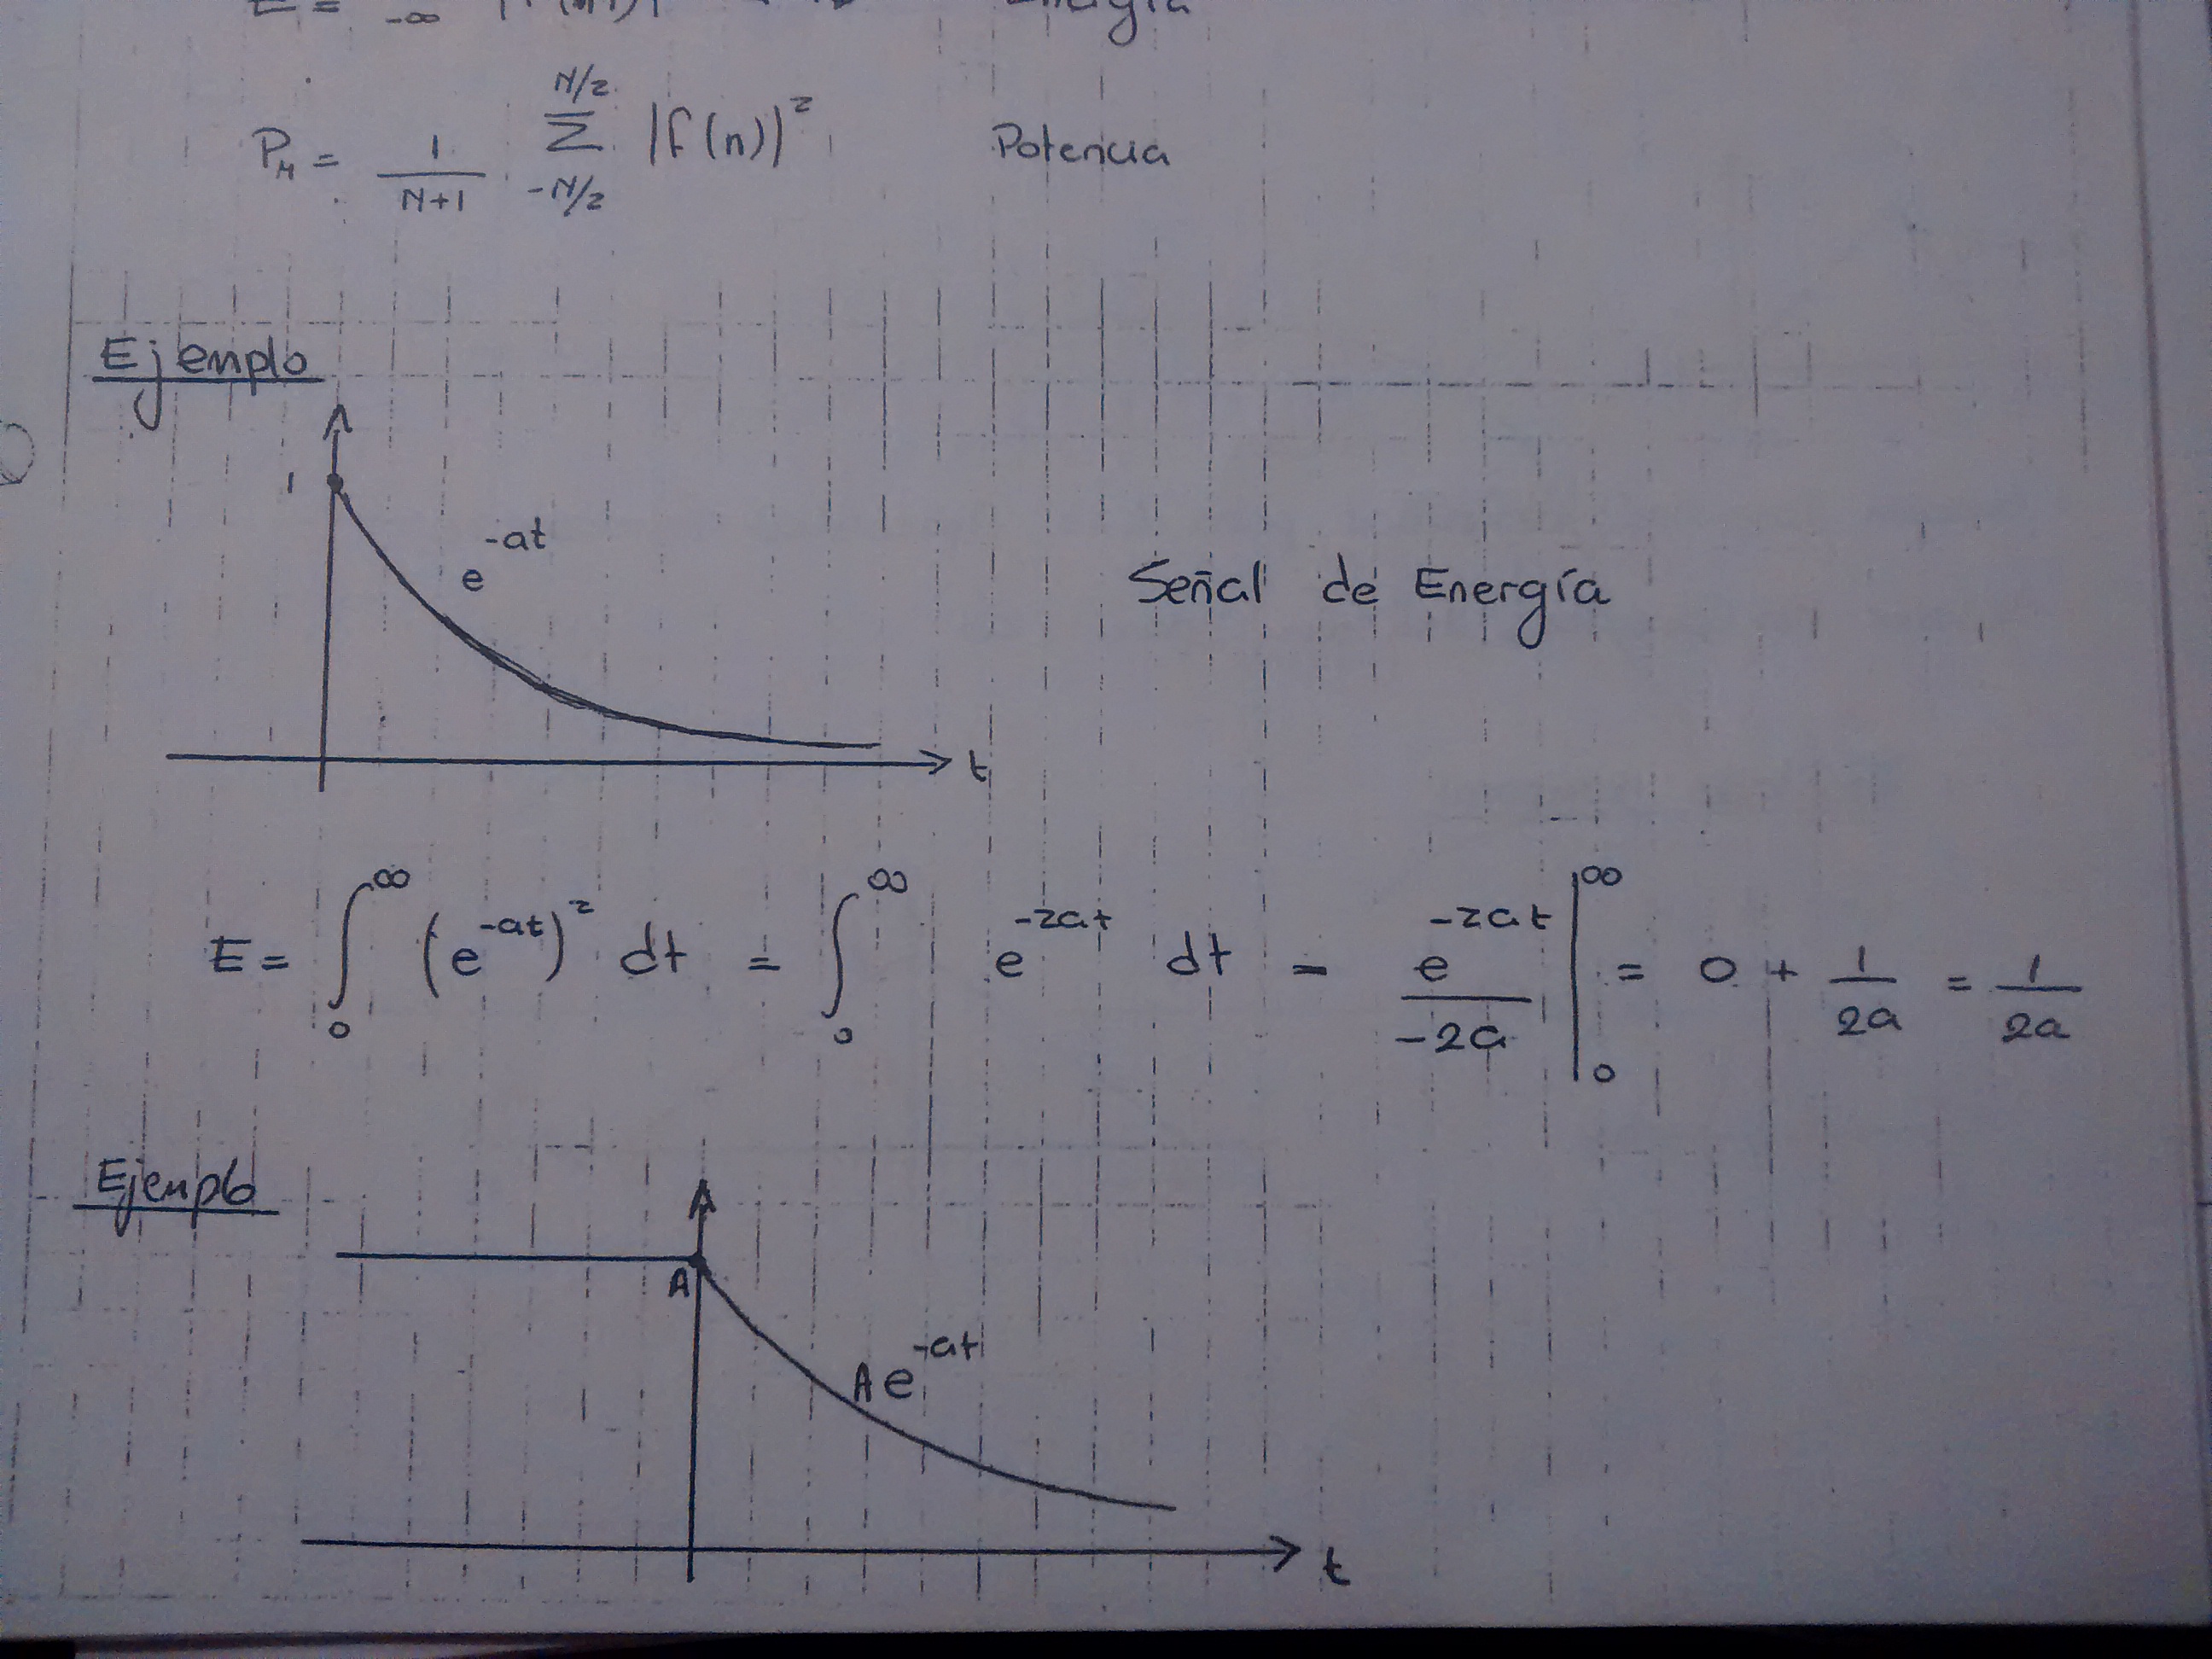 E = -∞
P_M = 1/(N+1) Σ_{-N/2}^{N/2} |f(n)|² Potencia
Ejemplo
1
e^{-at}
Señal de Energía
t
E = ∫_0^∞ (e^{-at})² dt = ∫_0^∞ e^{-2at} dt = e^{-2at}/-2a |_0^∞ = 0 + 1/2a = 1/2a
Ejemplo
A
Ae^{-at}
t